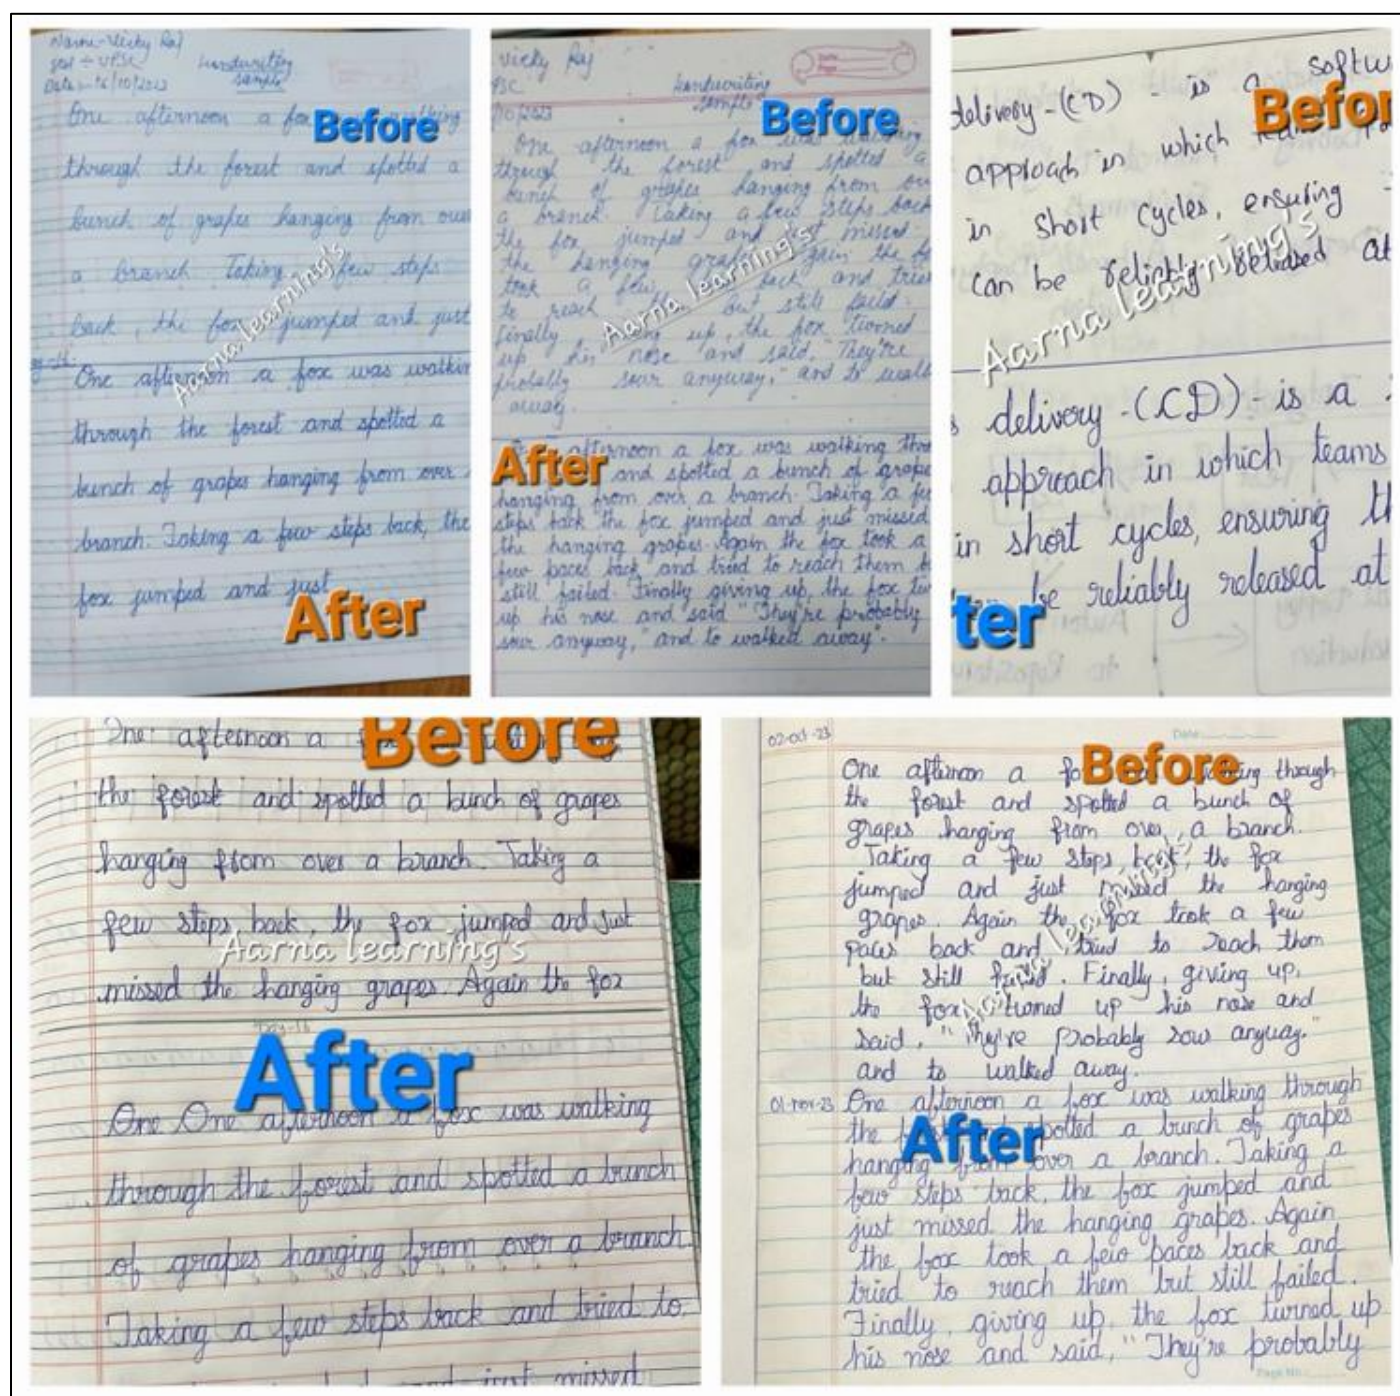 Name-Vicky Raj
Date:- 16/10/2023
handwriting
sample
Before
One afternoon a fox
through the forest and spotted a
bunch of grapes hanging from
a branch. Taking few steps
back, the fox jumped and just
Aarna learning's
One afternoon a fox was walkin
through the forest and spotted a
bunch of grapes hanging from over
branch. Taking a few steps back, the
fox jumped and just
After
Vicky Raj
handwriting
sample
Before
One afternoon a fox was walking
through the forest and spotted a
bunch of grapes hanging from
a branch. Taking a few steps back
the fox jumped and just missed
the hanging
took a few back and
to reach but still failed.
finally up, the fox turned
up his nose and said, "They're
probably sour anyway," and to
away.
Aarna learning's
After
afternoon a fox was walking
and spotted a bunch of grape
hanging from over a branch. Taking a
steps back the fox jumped and just missed
the hanging grapes. Again the fox took a
few paces back and tried to reach them
still failed. Finally giving up, the fox
up his nose and said "They're probably
sour anyway," and to walked away".
Befor
delivery-(CD) - is a softw
approach in which
in short cycles, ensuring
can be reliably released at
Aarna learning's
delivery-(CD)-is a
approach in which teams
in short cycles, ensuring th
be reliably released at
ter
Before
One afternoon a
the forest and spotted a bunch of grapes
hanging from over a branch. Taking a
few steps back, the fox jumped and just
Aarna learning's
missed the hanging grapes. Again the fox
After
One One afternoon a fox was walking
through the forest and spotted a bunch
of grapes hanging from over a branch
Taking a few steps back and tried to
just missed
02-oct-23
Date
Before
One afternoon a through
the forest and spotted a bunch of
grapes hanging from over a branch.
Taking a few steps back, the fox
jumped and just missed the hanging
grapes. Again the fox took a few
paces back and tried to reach them
but still failed. Finally, giving up,
the fox turned up his nose and
said, "They're probably sour anyway."
and to walked away.
01-nov-23
One afternoon a fox was walking through
After
the spotted a bunch of grapes
hanging from over a branch. Taking a
few steps back, the fox jumped and
just missed the hanging grapes. Again
the fox took a few paces back and
tried to reach them but still failed.
Finally, giving up, the fox turned up
his nose and said, "They're probably
Page No.